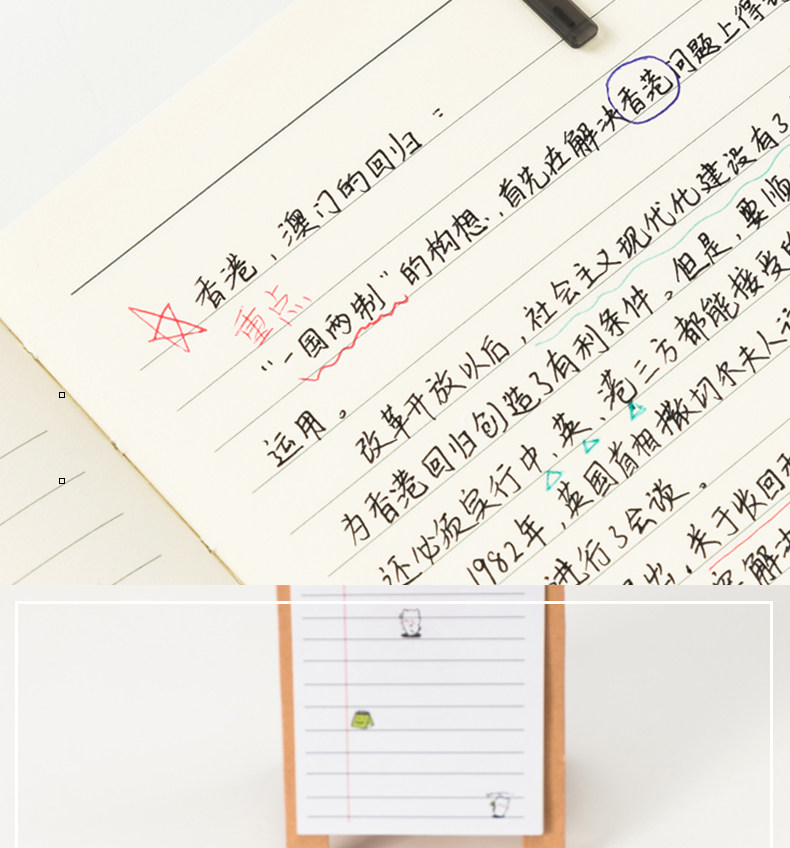 香港，澳门的回归：
重点
“一国两制”的构想，首先在解决香港问题上得
运用。
改革开放以后，社会主义现代化建设有了
为香港回归创造了有利条件。但是，要顺
还必须实行中、英、港三方都能接受的
1982年，英国首相撒切尔夫人
进行了会谈。
关于收回
解决